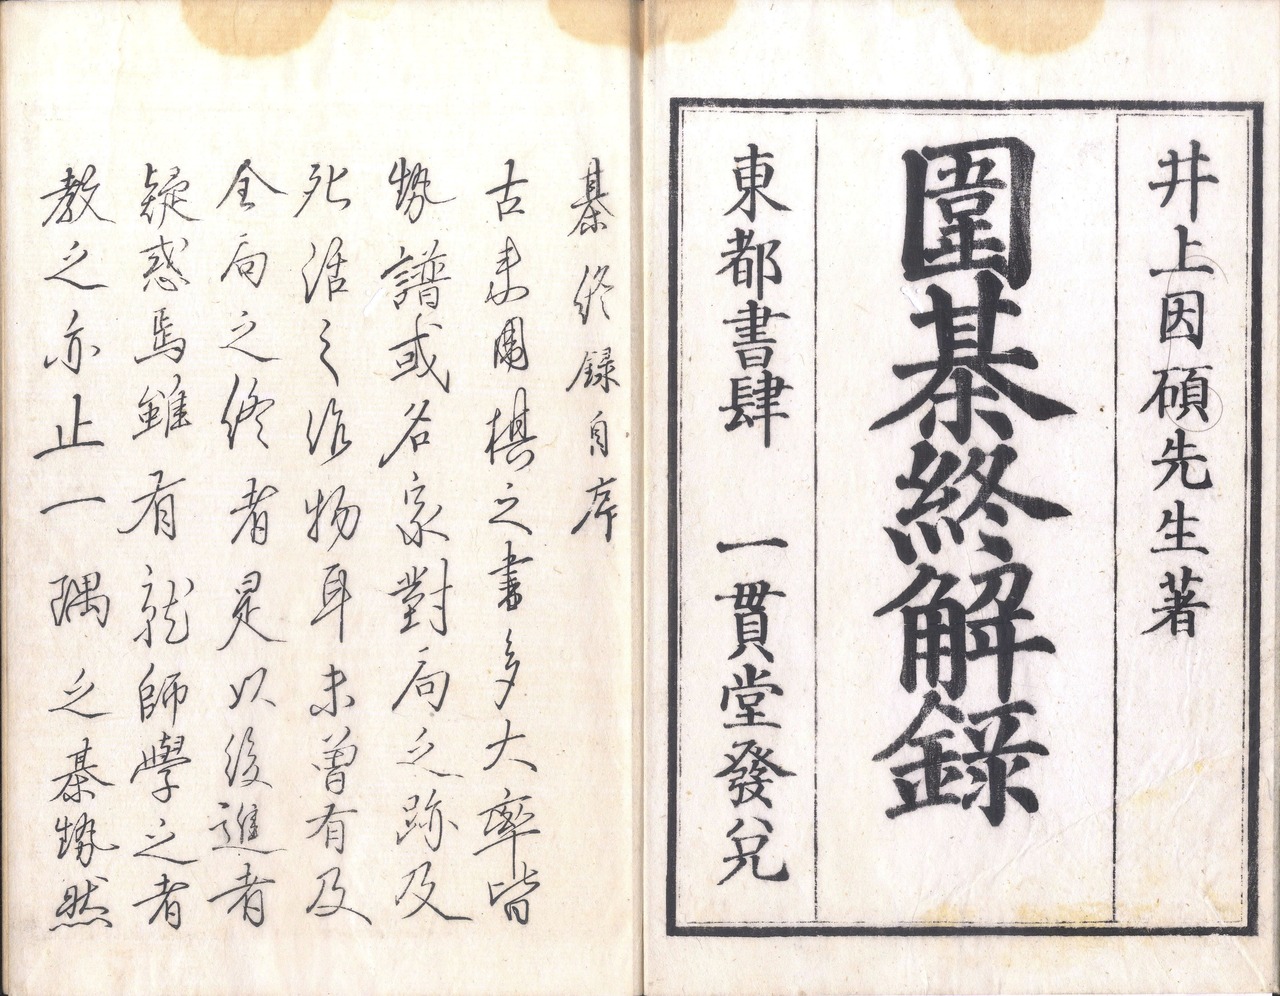 井上因碩先生著
圍棊終解録
東都書肆 一貫堂發兌
棊終録自序
古来圍棋之書多大率皆
勢譜或名家對局之跡及
死活之作物耳未曽有及
全局之終者是以後進者
疑惑焉雖有就師學之者
教之亦止一隅之棊勢然